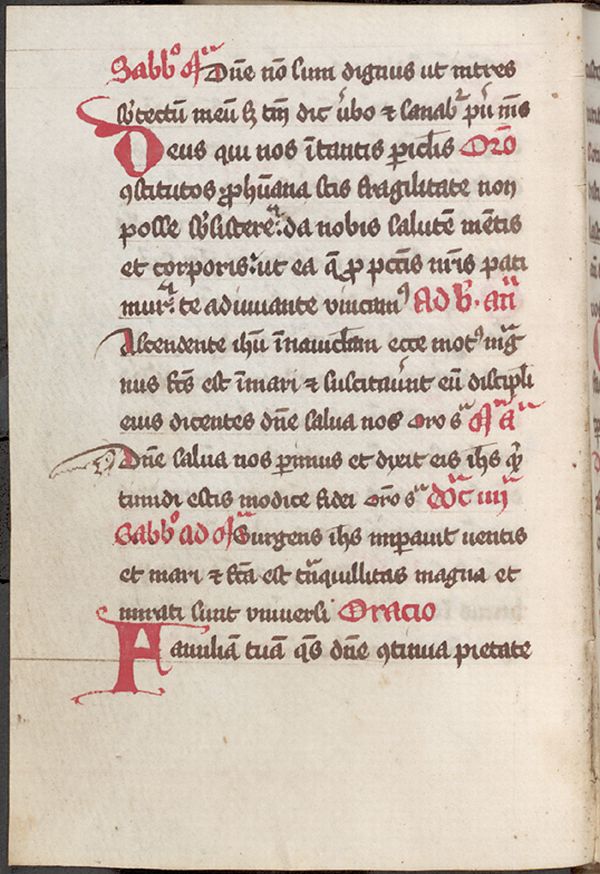 Sabbo aa Dn̄e nō sum dignus ut intres
sb' tectū meū sꝫ tm̄ dic ůbo ⁊ sanabr pu̇ m̄s
Deus qui nos ītantis piclīs Orō
ꝯstitutos ꝓ hūana scis fragilitate non
posse sb'sistere: da nobis salutē mētis
et corporis: ut ea q̄ ꝓ pcc̄tis nr̄is pati
mur: te adiuuante vincamꝰ Ad b'. an̄
Ascendente ihū ī nauicl̄am ecce motꝰ mag
nus fc̄s est ī mari ⁊ suscitaůnt eū discipl̄i
eius dicentes dn̄e salua nos Oro sa
Dn̄e salua nos perimus et dixit eis ih̄s qͥ
timidi estis modice fidei Orō sa Doc̄ iiij
Sabbo ad aa Surgens ih̄s imperauit uentis
et mari ⁊ fc̄a est tᵃnquillitas magna et
mirati sunt vniuersi Oracio
Familiā tuā qs̄ dn̄e ꝯtinua pietate